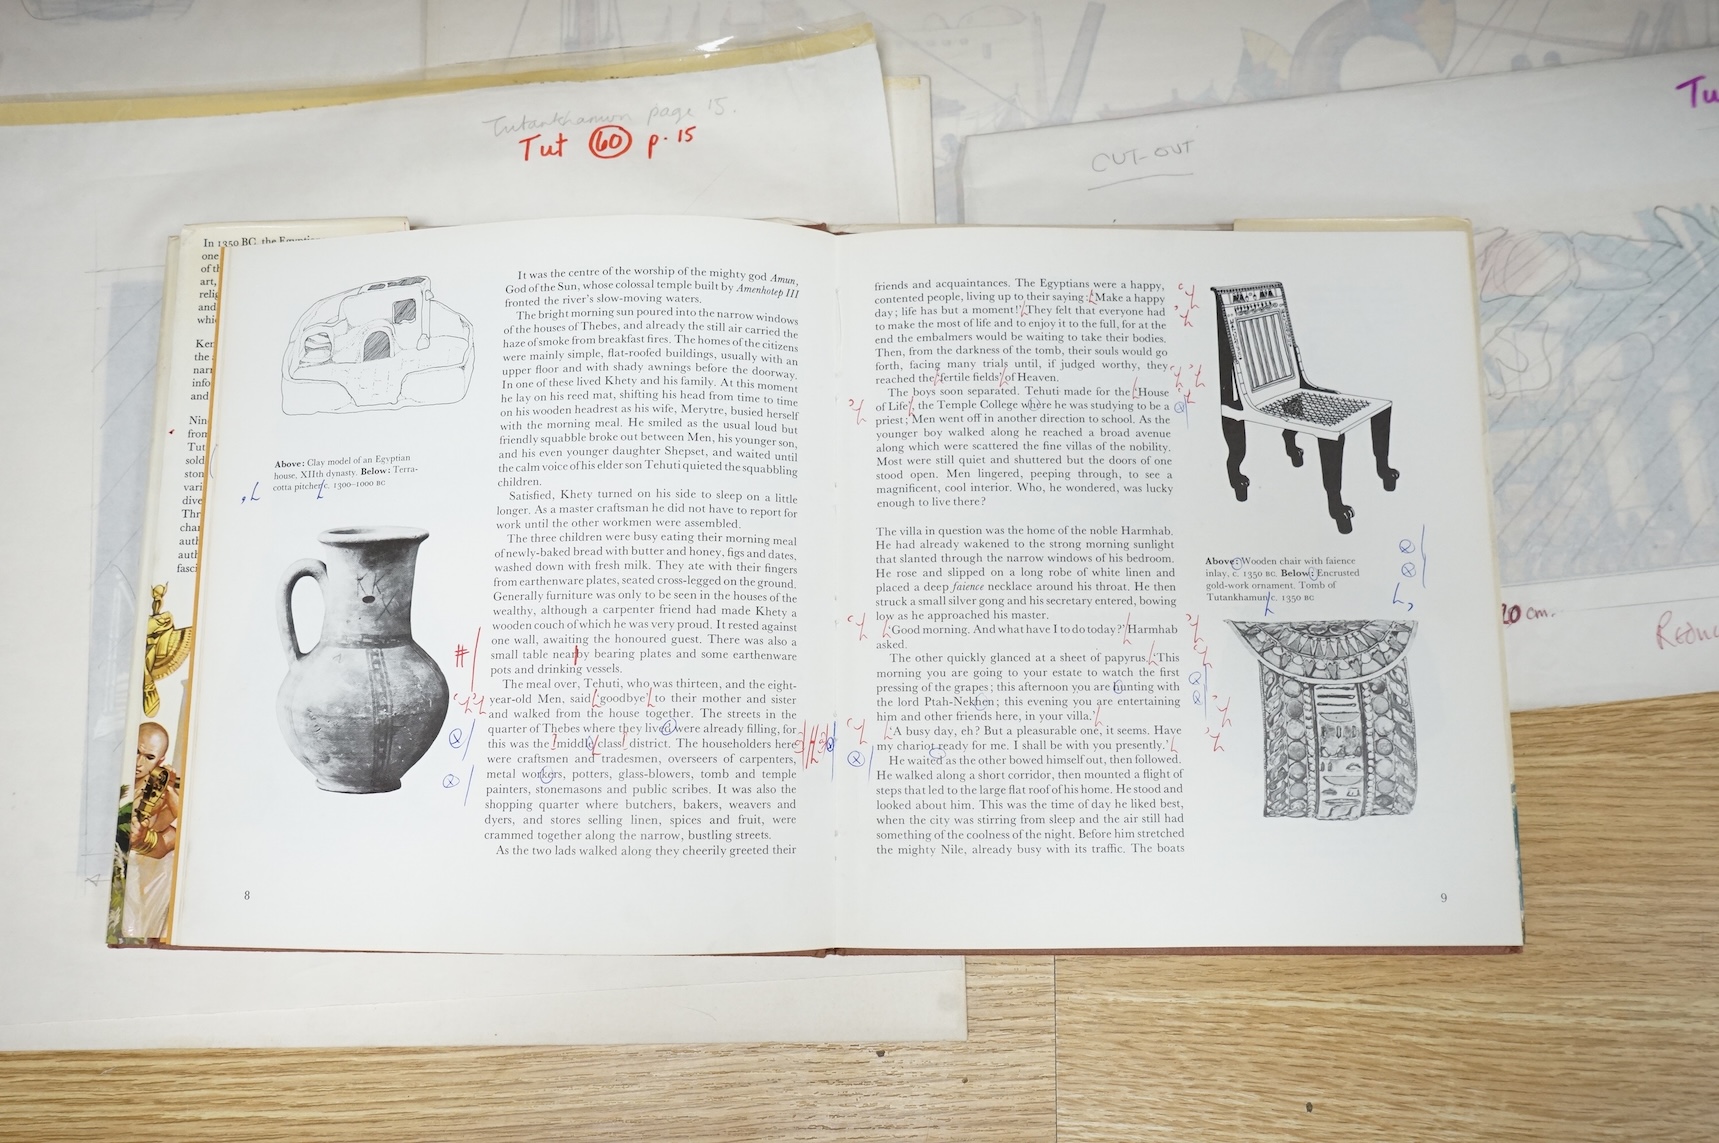 Tutankhamun page 15.
Tut 60 p. 15
CUT-OUT
Tu
20 cm.
In 1350 BC, the Egyptian
one
of th
art,
relig
and
whic
Ken
the
narr
info
and
Nin
from
Tut
sold
ston
vari
dive
Thr
char
auth
auth
fasci
Above: Clay model of an Egyptian
house, XIIth dynasty. Below: Terra-
cotta pitcher c. 1300–1000 BC
It was the centre of the worship of the mighty god Amun,
God of the Sun, whose colossal temple built by Amenhotep III
fronted the river's slow-moving waters.
The bright morning sun poured into the narrow windows
of the houses of Thebes, and already the still air carried the
haze of smoke from breakfast fires. The homes of the citizens
were mainly simple, flat-roofed buildings, usually with an
upper floor and with shady awnings before the doorway.
In one of these lived Khety and his family. At this moment
he lay on his reed mat, shifting his head from time to time
on his wooden headrest as his wife, Merytre, busied herself
with the morning meal. He smiled as the usual loud but
friendly squabble broke out between Men, his younger son,
and his even younger daughter Shepset, and waited until
the calm voice of his elder son Tehuti quieted the squabbling
children.
Satisfied, Khety turned on his side to sleep on a little
longer. As a master craftsman he did not have to report for
work until the other workmen were assembled.
The three children were busy eating their morning meal
of newly-baked bread with butter and honey, figs and dates,
washed down with fresh milk. They ate with their fingers
from earthenware plates, seated cross-legged on the ground.
Generally furniture was only to be seen in the houses of the
wealthy, although a carpenter friend had made Khety a
wooden couch of which he was very proud. It rested against
one wall, awaiting the honoured guest. There was also a
small table nearby bearing plates and some earthenware
pots and drinking vessels.
The meal over, Tehuti, who was thirteen, and the eight-
year-old Men, said 'goodbye' to their mother and sister
and walked from the house together. The streets in the
quarter of Thebes where they lived were already filling, for
this was the 'middle class' district. The householders here
were craftsmen and tradesmen, overseers of carpenters,
metal workers, potters, glass-blowers, tomb and temple
painters, stonemasons and public scribes. It was also the
shopping quarter where butchers, bakers, weavers and
dyers, and stores selling linen, spices and fruit, were
crammed together along the narrow, bustling streets.
As the two lads walked along they cheerily greeted their
8
friends and acquaintances. The Egyptians were a happy,
contented people, living up to their saying: 'Make a happy
day; life has but a moment!' They felt that everyone had
to make the most of life and to enjoy it to the full, for at the
end the embalmers would be waiting to take their bodies.
Then, from the darkness of the tomb, their souls would go
forth, facing many trials until, if judged worthy, they
reached the 'fertile fields' of Heaven.
The boys soon separated. Tehuti made for the 'House
of Life', the Temple College where he was studying to be a
priest; Men went off in another direction to school. As the
younger boy walked along he reached a broad avenue
along which were scattered the fine villas of the nobility.
Most were still quiet and shuttered but the doors of one
stood open. Men lingered, peeping through, to see a
magnificent, cool interior. Who, he wondered, was lucky
enough to live there?
The villa in question was the home of the noble Harmhab.
He had already wakened to the strong morning sunlight
that slanted through the narrow windows of his bedroom.
He rose and slipped on a long robe of white linen and
placed a deep faience necklace around his throat. He then
struck a small silver gong and his secretary entered, bowing
low as he approached his master.
'Good morning. And what have I to do today?' Harmhab
asked.
The other quickly glanced at a sheet of papyrus. 'This
morning you are going to your estate to watch the first
pressing of the grapes; this afternoon you are hunting with
the lord Ptah-Nekhen; this evening you are entertaining
him and other friends here, in your villa.'
'A busy day, eh? But a pleasurable one, it seems. Have
my chariot ready for me. I shall be with you presently.'
He waited as the other bowed himself out, then followed.
He walked along a short corridor, then mounted a flight of
steps that led to the large flat roof of his home. He stood and
looked about him. This was the time of day he liked best,
when the city was stirring from sleep and the air still had
something of the coolness of the night. Before him stretched
the mighty Nile, already busy with its traffic. The boats
Above: Wooden chair with faience
inlay, c. 1350 BC. Below: Encrusted
gold-work ornament. Tomb of
Tutankhamun c. 1350 BC
9